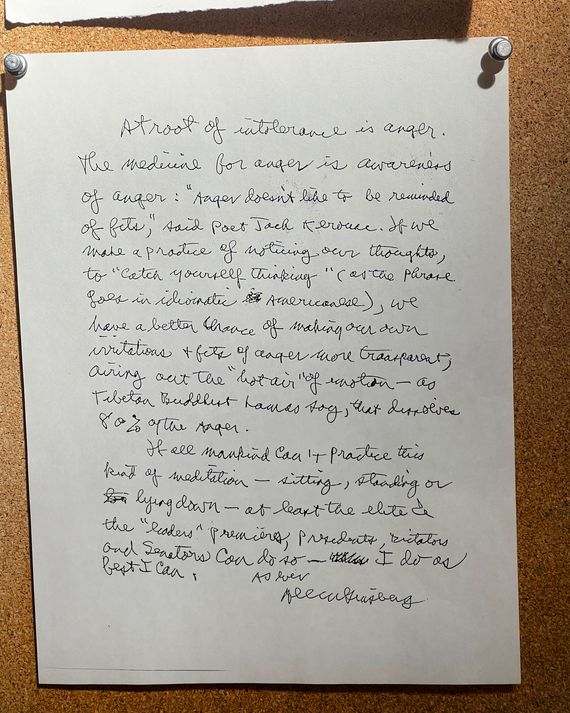 At root of intolerance is anger.
The medicine for anger is awareness
of anger: "Anger doesn't like to be reminded
of fits," said Poet Jack Kerouac. If we
make a practice of noticing our thoughts,
to "Catch yourself thinking" (as the phrase
goes in idiomatic Americanese), we
have a better chance of making our own
irritations & fits of anger more transparent,
airing out the "hot air" of emotion — as
Tibetan Buddhist Lamas say, that dissolves
80% of the Anger.
If all mankind can't practice this
kind of meditation — sitting, standing or
lying down — at least the elite
the "leaders" premiers, Presidents, Dictators
and Senators can do so — I do as
best I can.
As ever
Allen Ginsberg